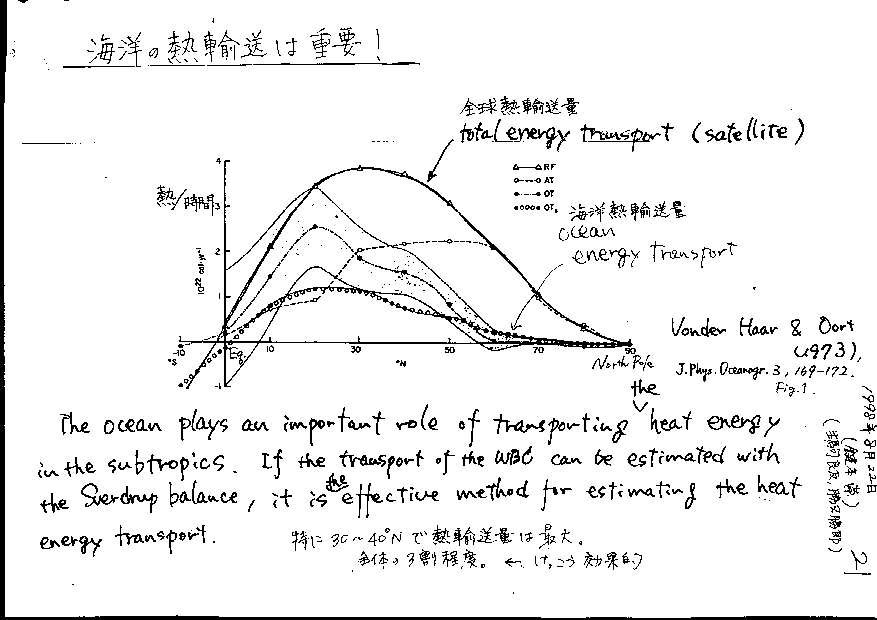 海洋の熱輸送は重要!
全球熱輸送量
total energy transport (satellite)
RF
AT
OT
OT
海洋熱輸送量
ocean
energy transport
熱/時間
10²² cal·yr⁻¹
4
3
2
1
-1
°S -10
Eq.
10
30
°N
50
70
90
North Pole
Vonder Haar & Oort
(1973),
J. Phys. Oceanogr. 3, 169-172.
Fig. 1
the
The ocean plays an important role of transporting heat energy
in the subtropics. If the transport of the WBC can be estimated with
the Sverdrup balance, it is the effective method for estimating the heat
energy transport.
特に 30~40°N で熱輸送量は最大。
全体の3割程度。 ← けっこう効果的
1998年8月22日
21